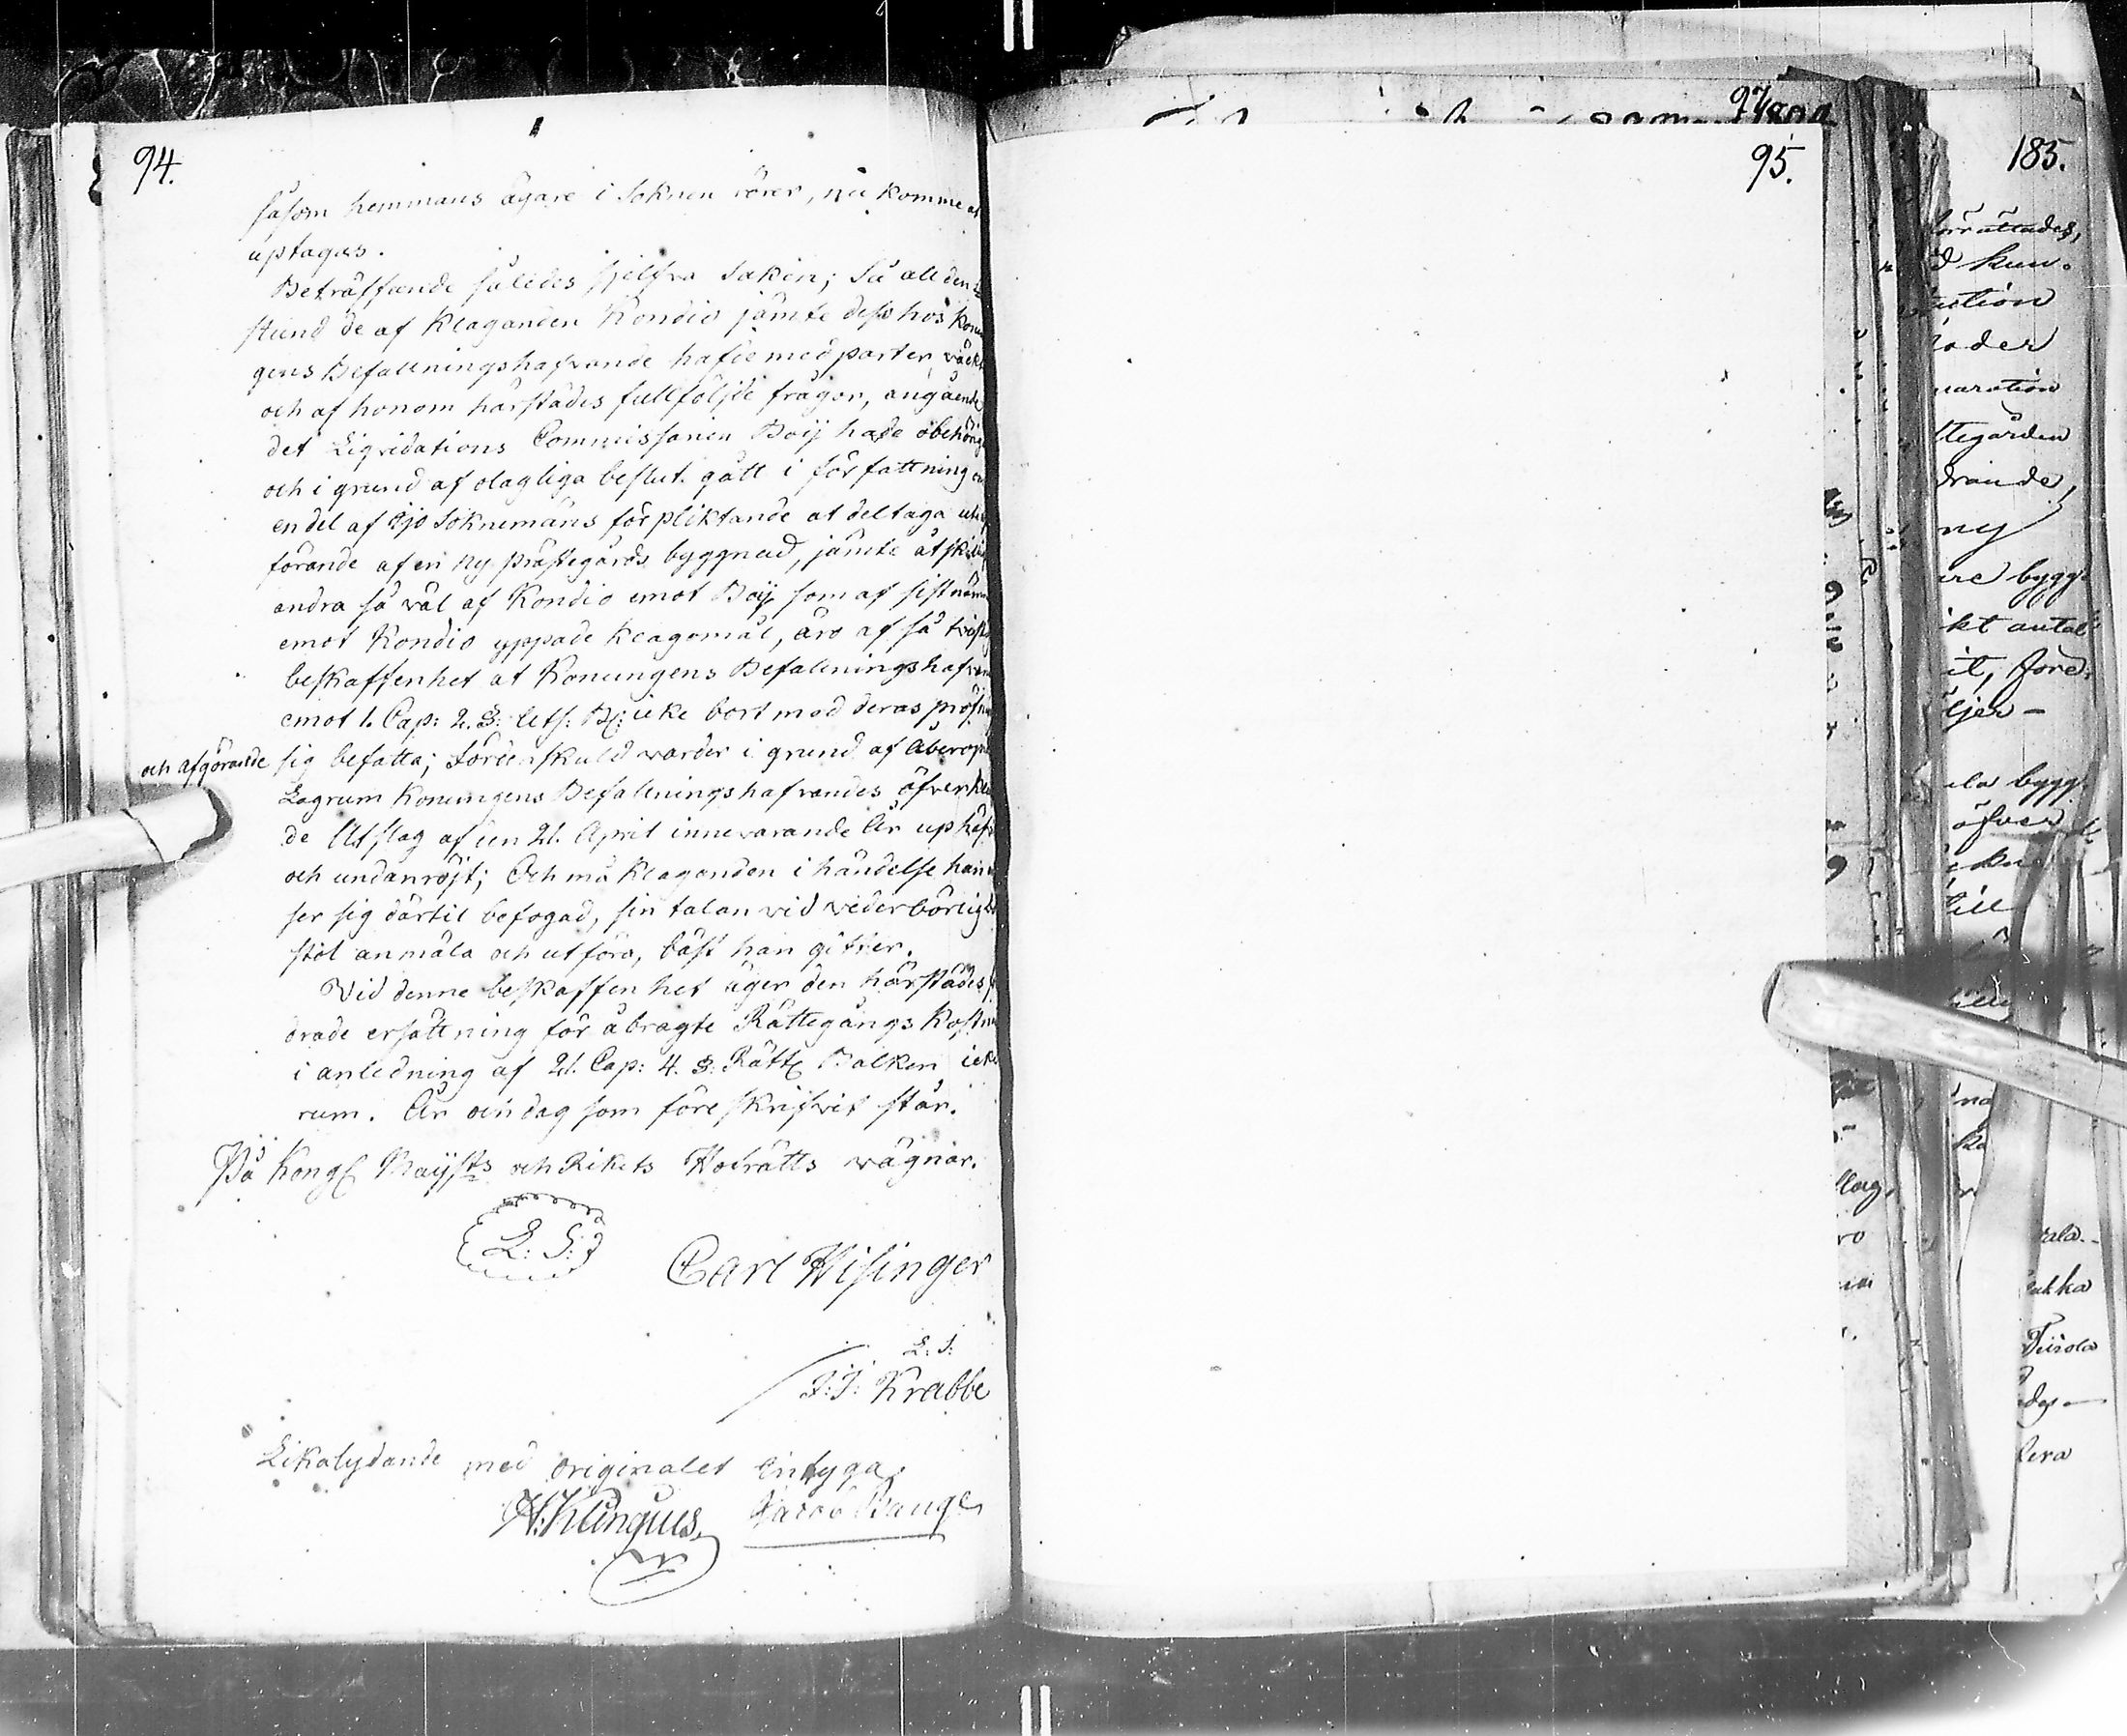 94.
såsom hemmans ägare i Soknen rörer, nu komme at
uptagas.
Beträffande således sjelfva Saken; Så all den
stund de af Klaganden Kondio jämte dess hos Konun
gens Befallningshafvande hafde medparter, väckt
och af honom härstädes fullföljde frågor, angående
det Liqvidations Commissarien Boij hade obehörig
och i grund af olagliga beslut gått i författning om
en del af Ejo Soknemäns förpliktande at deltaga
förande af en ny prästegårds byggnad, jämte åtskillig
andra så väl af Kondio emot Boij som af sistnämn
emot Kondio yppade klagomål, äro af så tvistig
beskaffenhet at Konungens Befallningshafvan
emot 1. Cap: 2. §: Uts: B: icke bort med deras pröfning
och afgörande sig befatta; Fördenskuld varder i grund af åberopt
Lagrum Konungens Befallningshafvandes öfverkla
de Utslag af den 21. April innevarande År uphäft
och undanröjt; Och må klaganden i händelse han
ser sig därtil befogad, sin talan vid vederbörlig
stol anmäla och utföra, bäst han gitter.
Vid denne beskaffenhet äger den härstädes
drade ersättning för åbragte Rättegångs Kostna
i anledning af 21. Cap: 4. §: Rätt: Balken icke
rum. År och dag som föreskrifvit står.
På Kongl Maijsts och Rikets Hofrätts vägnar.
L: S:
Carl Hisinger
L: S:
J: J: Krabbe
Likalydande med originalet intyga
H: Klingius. Jacob Bange
95.
185.
örrättades,
ution
oder
uaration
tegården
drande,
ny
are bygg
kt antal
it, före
ljer -
ula bygg
öfver
till
rala.
ukka
Tiirola